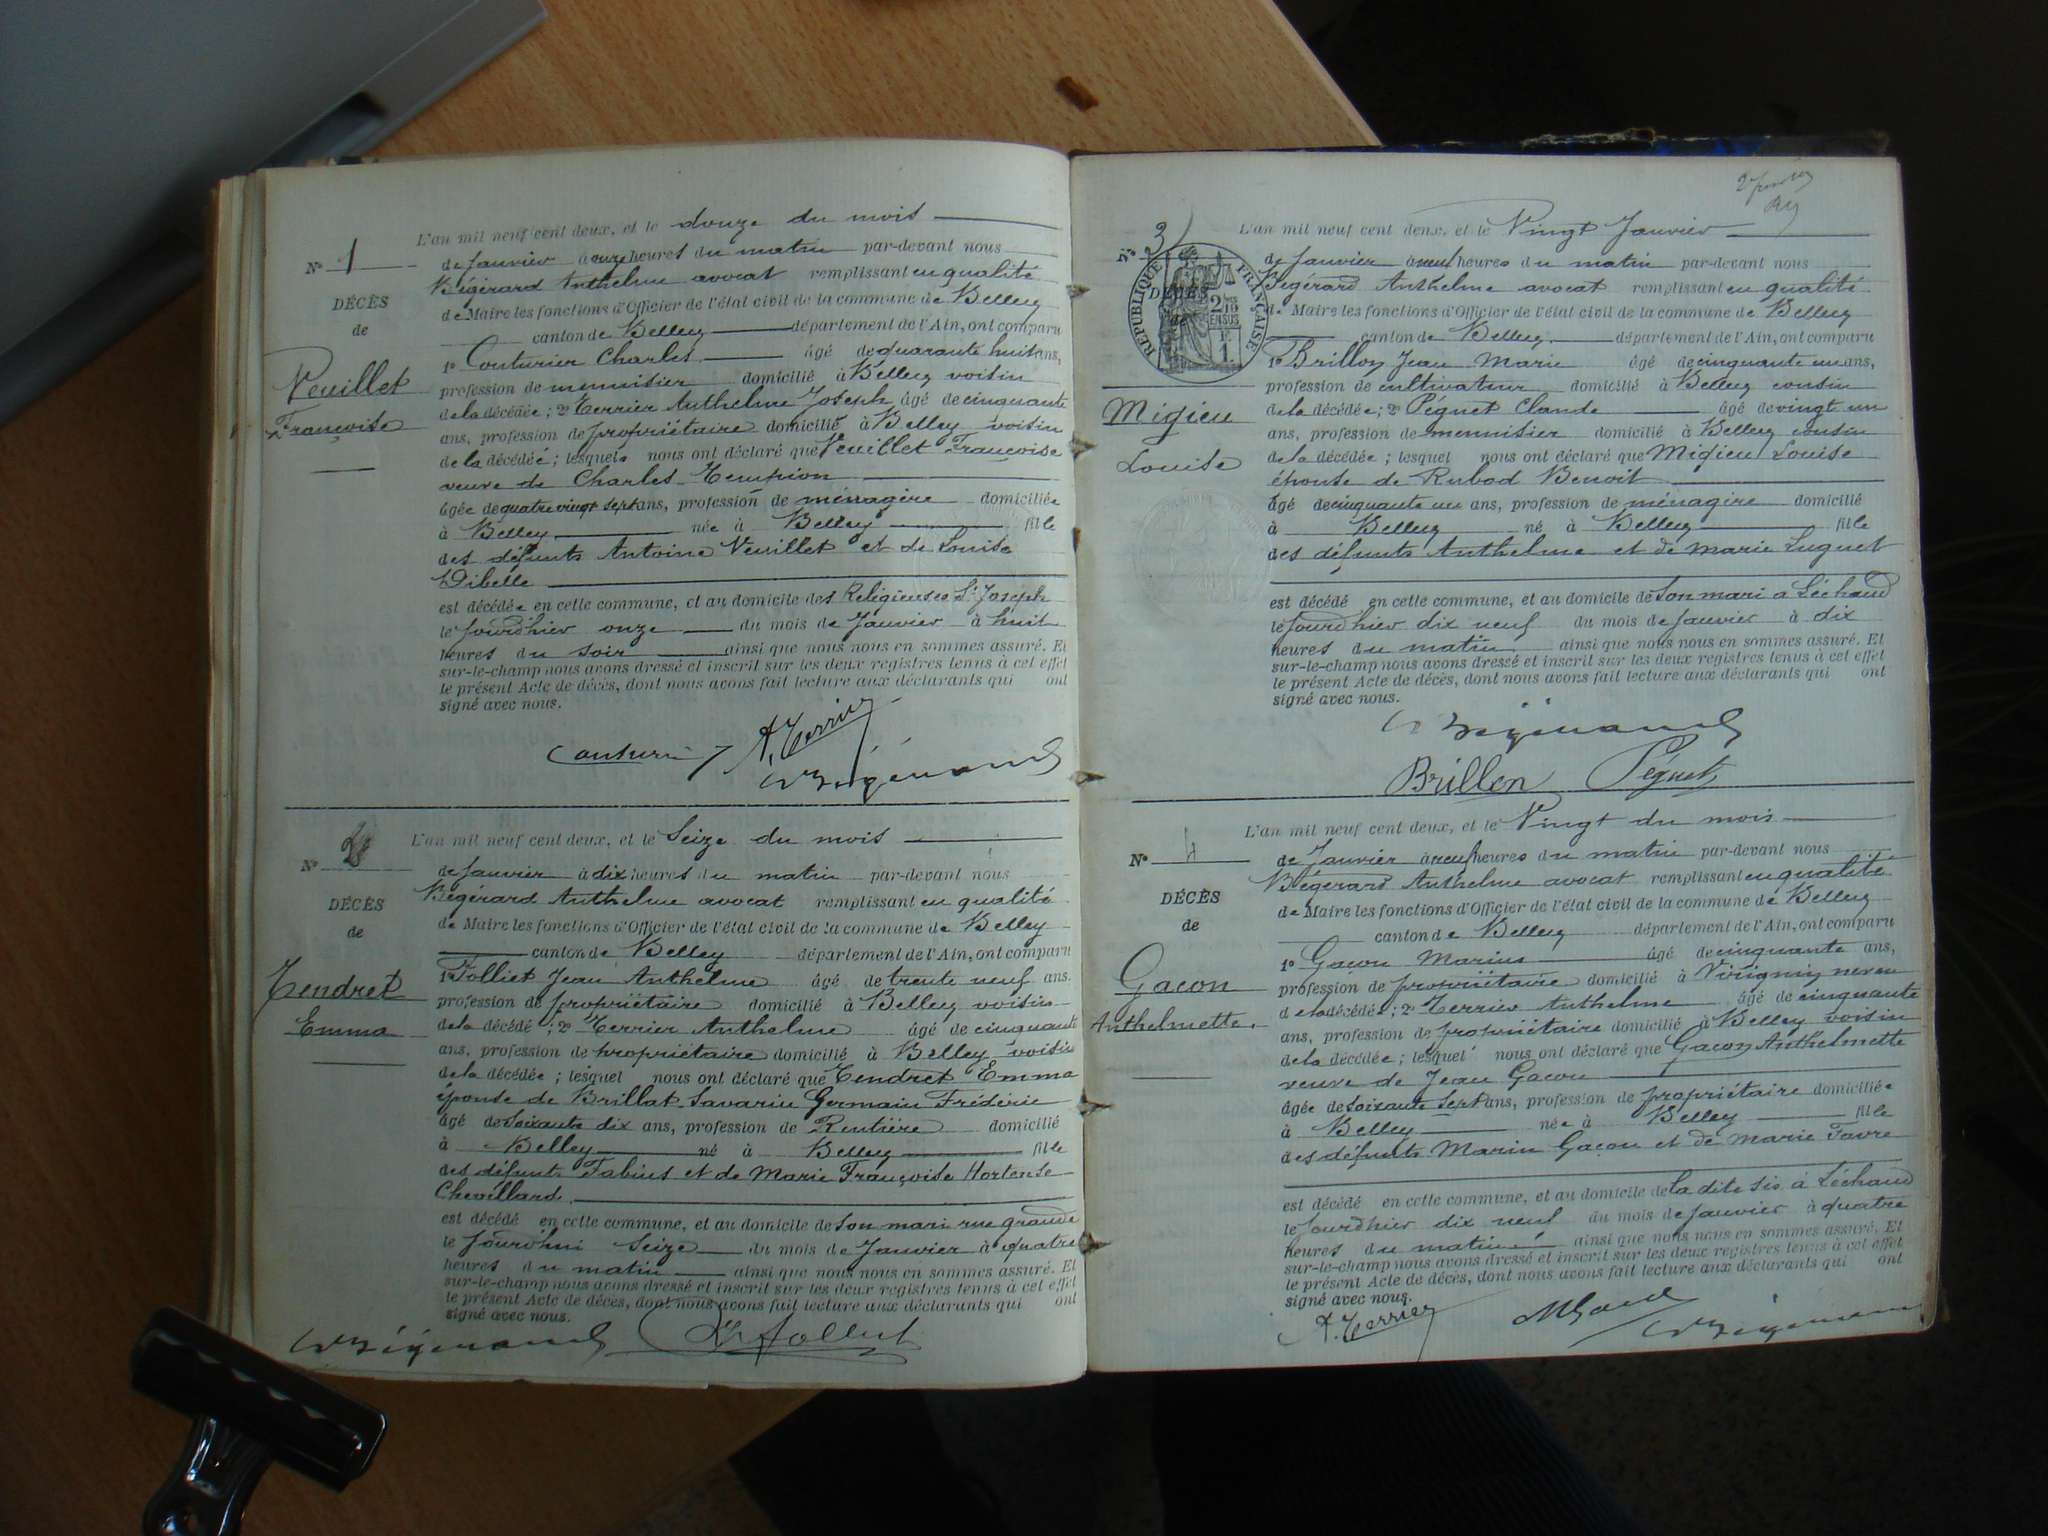 N° 1
DÉCÈS
de
Veuillet
Françoise
L'an mil neuf cent deux, et le douze du mois
de Janvier à onze heures du matin par-devant nous
Bégérard Anthelme avocat remplissant en qualité
de Maire les fonctions d'Officier de l'état civil de la commune de Belley
canton de Belley département de l'Ain, ont comparu
1° Couturier Charles âgé de quarante huit ans,
profession de menuisier domicilié à Belley voisin
de la décédée ; 2° Terrier Anthelme Joseph âgé de cinquante
ans, profession de propriétaire domicilié à Belley voisin
de la décédée ; lesquels nous ont déclaré que Veuillet Françoise
veuve de Charles Tempion
âgée de quatre vingt sept ans, profession de ménagère domiciliée
à Belley née à Belley fille
des défunts Antoine Veuillet et de Louise
Dibelle
est décédée en cette commune, et au domicile des Religieuses St Joseph
le jourd'hier onze du mois de Janvier à huit
heures du soir ainsi que nous nous en sommes assuré. Et
sur-le-champ nous avons dressé et inscrit sur les deux registres tenus à cet effet
le présent Acte de décès, dont nous avons fait lecture aux déclarants qui ont
signé avec nous.
Couturier A. Terrier
Bégérard
N° 2
DÉCÈS
de
Tendret
Emma
L'an mil neuf cent deux, et le Seize du mois
de Janvier à dix heures du matin par-devant nous
Bégérard Anthelme avocat remplissant en qualité
de Maire les fonctions d'Officier de l'état civil de la commune de Belley
canton de Belley département de l'Ain, ont comparu
1° Folliet Jean Anthelme âgé de trente neuf ans.
profession de propriétaire domicilié à Belley voisin
de la décédé ; 2° Terrier Anthelme âgé de cinquante
ans, profession de propriétaire domicilié à Belley voisin
de la décédée ; lesquel nous ont déclaré que Tendret Emma
épouse de Brillat-Savarin Germain Frédéric
âgé de Soixante dix ans, profession de Rentière domicilié
à Belley né à Belley fille
des défunts Fabius et de Marie Françoise Hortense
Chevillard
est décédé en cette commune, et au domicile de son mari rue grande
le jourd'hui Seize du mois de Janvier à quatre
heures du matin ainsi que nous nous en sommes assuré. Et
sur-le-champ nous avons dressé et inscrit sur les deux registres tenus à cet effet
le présent Acte de décès, dont nous avons fait lecture aux déclarants qui ont
signé avec nous.
Bégérard Folliet
N° 3
RÉPUBLIQUE FRANÇAISE
DÉCÈS
de
Migieu
Louise
L'an mil neuf cent deux, et le Vingt Janvier
de Janvier à neuf heures du matin par-devant nous
Bégérard Anthelme avocat remplissant en qualité
de Maire les fonctions d'Officier de l'état civil de la commune de Belley
canton de Belley département de l'Ain, ont comparu
1° Brillon Jean Marie âgé de cinquante un ans,
profession de cultivateur domicilié à Belley cousin
de la décédée ; 2° Péguet Claude âgé de vingt un
ans, profession de menuisier domicilié à Belley cousin
de la décédée ; lesquel nous ont déclaré que Migieu Louise
épouse de Rubod Benoit
âgé de cinquante un ans, profession de ménagère domicilié
à Belley né à Belley fille
des défunts Anthelme et de Marie Luguet
est décédé en cette commune, et au domicile de Son mari à Léchaud
le jourd'hier dix neuf du mois de Janvier à dix
heures du matin ainsi que nous nous en sommes assuré. Et
sur-le-champ nous avons dressé et inscrit sur les deux registres tenus à cet effet
le présent Acte de décès, dont nous avons fait lecture aux déclarants qui ont
signé avec nous.
Bégérard
Brillon Péguet
N° 4
DÉCÈS
de
Gacon
Anthelmette
L'an mil neuf cent deux, et le Vingt du mois
de Janvier à neuf heures du matin par-devant nous
Bégérard Anthelme avocat remplissant en qualité
de Maire les fonctions d'Officier de l'état civil de la commune de Belley
canton de Belley département de l'Ain, ont comparu
1° Gacon Marius âgé de cinquante ans,
profession de propriétaire domicilié à Virignin neveu
de la décédée ; 2° Terrier Anthelme âgé de cinquante
ans, profession de propriétaire domicilié à Belley voisin
de la décédée ; lesquel nous ont déclaré que Gacon Anthelmette
veuve de Jean Gacon
âgée de Soixante Sept ans, profession de propriétaire domiciliée
à Belley née à Belley fille
des défunts Marin Gacon et de Marie Favre
est décédé en cette commune, et au domicile de la dite sis à Léchaud
le jourd'hier dix neuf du mois de Janvier à quatre
heures du matin ainsi que nous nous en sommes assuré. Et
sur-le-champ nous avons dressé et inscrit sur les deux registres tenus à cet effet
le présent Acte de décès, dont nous avons fait lecture aux déclarants qui ont
signé avec nous.
A. Terrier MGacon Bégérard